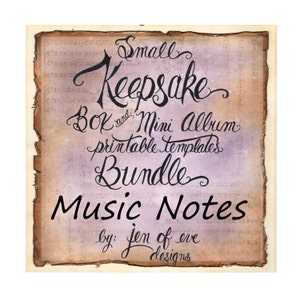 Small
Keepsake
Box and Mini Album
printable templates
Bundle
Music Notes
by: jen of eve
designs